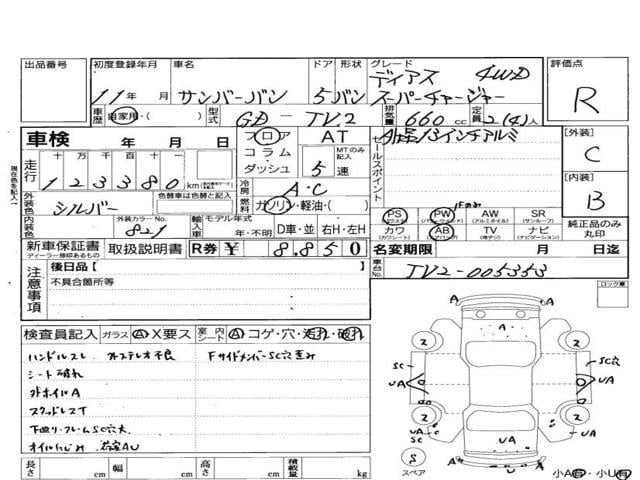 出品番号
初度登録年月 車名 ドア 形状 グレード 評価点
ディアス 4WD
11年 月 サンバーバン 5 バン スーパーチャージャー R
車歴 自家用・( ) 型式 GD-TV2 排気量 660cc 定員 2(4)人
車検 年 月 日
フロア コラム ダッシュ AT MTのみ記入 5速
セールスポイント 外品13インチアルミ
[外装] C
走行 十 万 千 百 十 一
1 2 3 3 8 0 km
冷房 A・C
[内装] B
外装色 シルバー 色替車は色替と記入
燃料 ガソリン・軽油・( )
Fのみ
PS PW AW SR
(パワステ) (パワーウィンド) (アルミホイル) (サンルーフ)
純正品のみ丸印
内装色 外装カラーNo. 821 輸入車 モデル年式 年・不明 D車・並 右H・左H
カワ AB TV ナビ
(カワシート) (エアバッグ) (地デジ) (ナビゲーション)
新車保証書 ディーラー捺印あるもの 取扱説明書 R券 ¥ 8.850
名変期限 月 日迄
注意事項 後日品【 】
不具合箇所等
車台No. TV2-005353
ロック車
検査員記入 ガラス A X要ス 室内シート A コゲ・穴・汚れ・破れ
ハンドルスレ カーステレオ不良 FサイドメンバーSC穴歪み
シート破れ
外ホイルA
スタッドレスT
下回り・フレームSC穴大
オイルにじみ 荷室AU
A
A
A A
2 2
SC SC穴
UA UA
2 2
UA
SC
UA
UA
S
スペア
A A
小A有・小U有
長さ cm 幅 cm 高さ cm 積載量 kg
現在色を記入